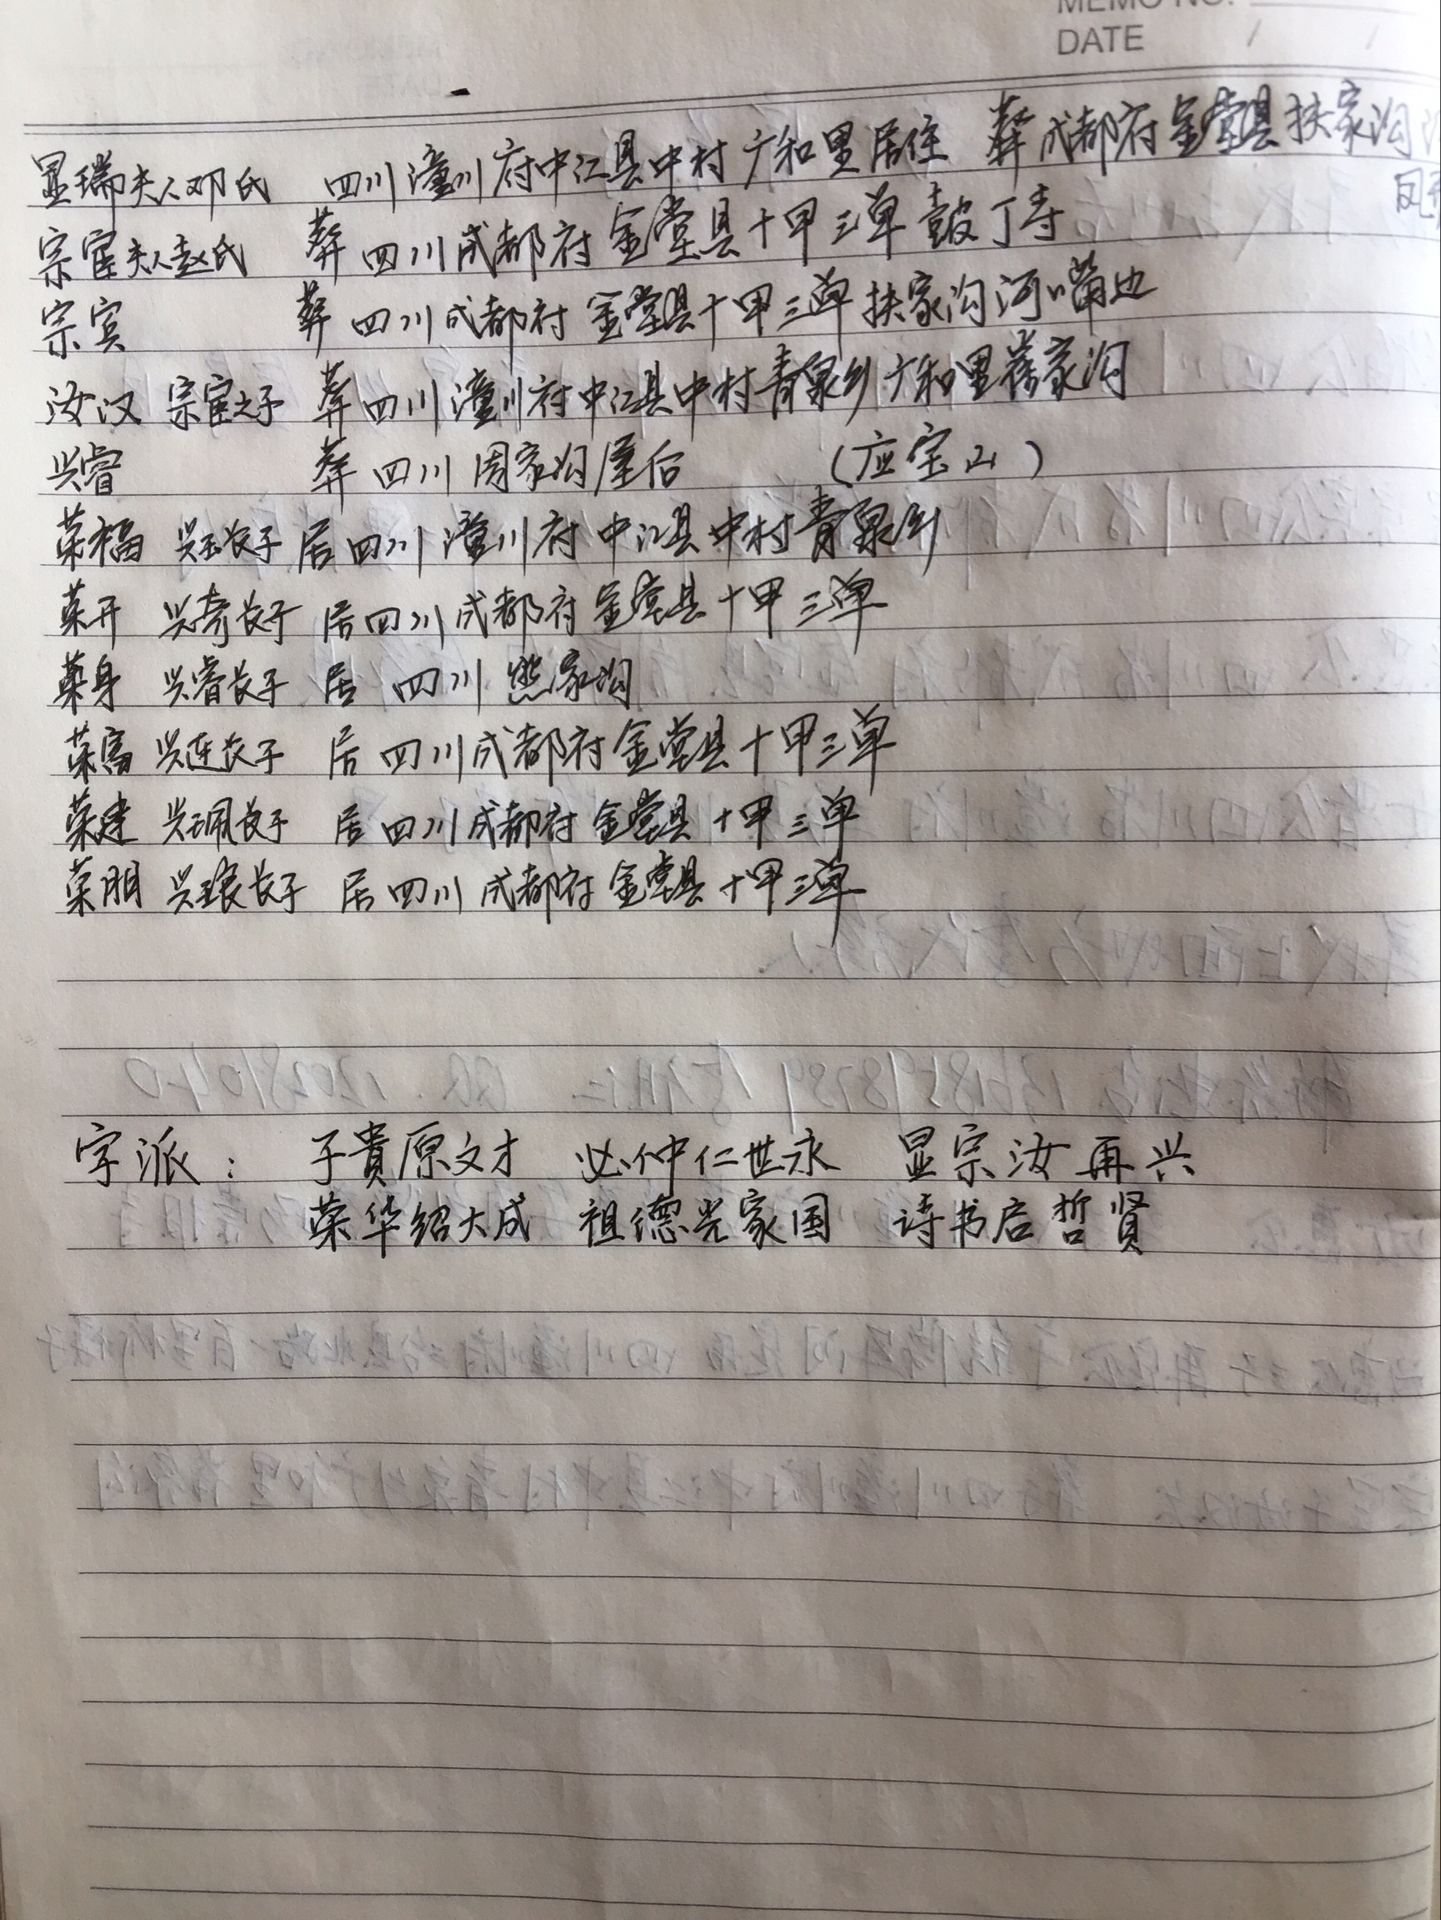 MEMO NO.
DATE / /
显瑞夫人邓氏 四川潼川府中江县中村广和里居住 葬成都府金堂县扶家沟
宗宦夫人赵氏 葬四川成都府金堂县十甲三单鼓丁寺
宗宾 葬四川成都府金堂县十甲三单扶家沟河嘴边
汝汉 宗宦之子 葬四川潼川府中江县中村青泉乡广和里蒋家沟
兴睿 葬四川周家沟屋后 (应宝山)
荣福 兴玉长子 居四川潼川府中江县中村青泉乡
荣开 兴奇长子 居四川成都府金堂县十甲三单
荣身 兴睿长子 居四川熊家沟
荣富 兴连长子 居四川成都府金堂县十甲三单
荣建 兴珮长子 居四川成都府金堂县十甲三单
荣朋 兴琅长子 居四川成都府金堂县十甲三单
字派: 子貴原文才 必仲仁世永 显宗汝再兴
荣华绍大成 祖德光家国 诗书启哲贤